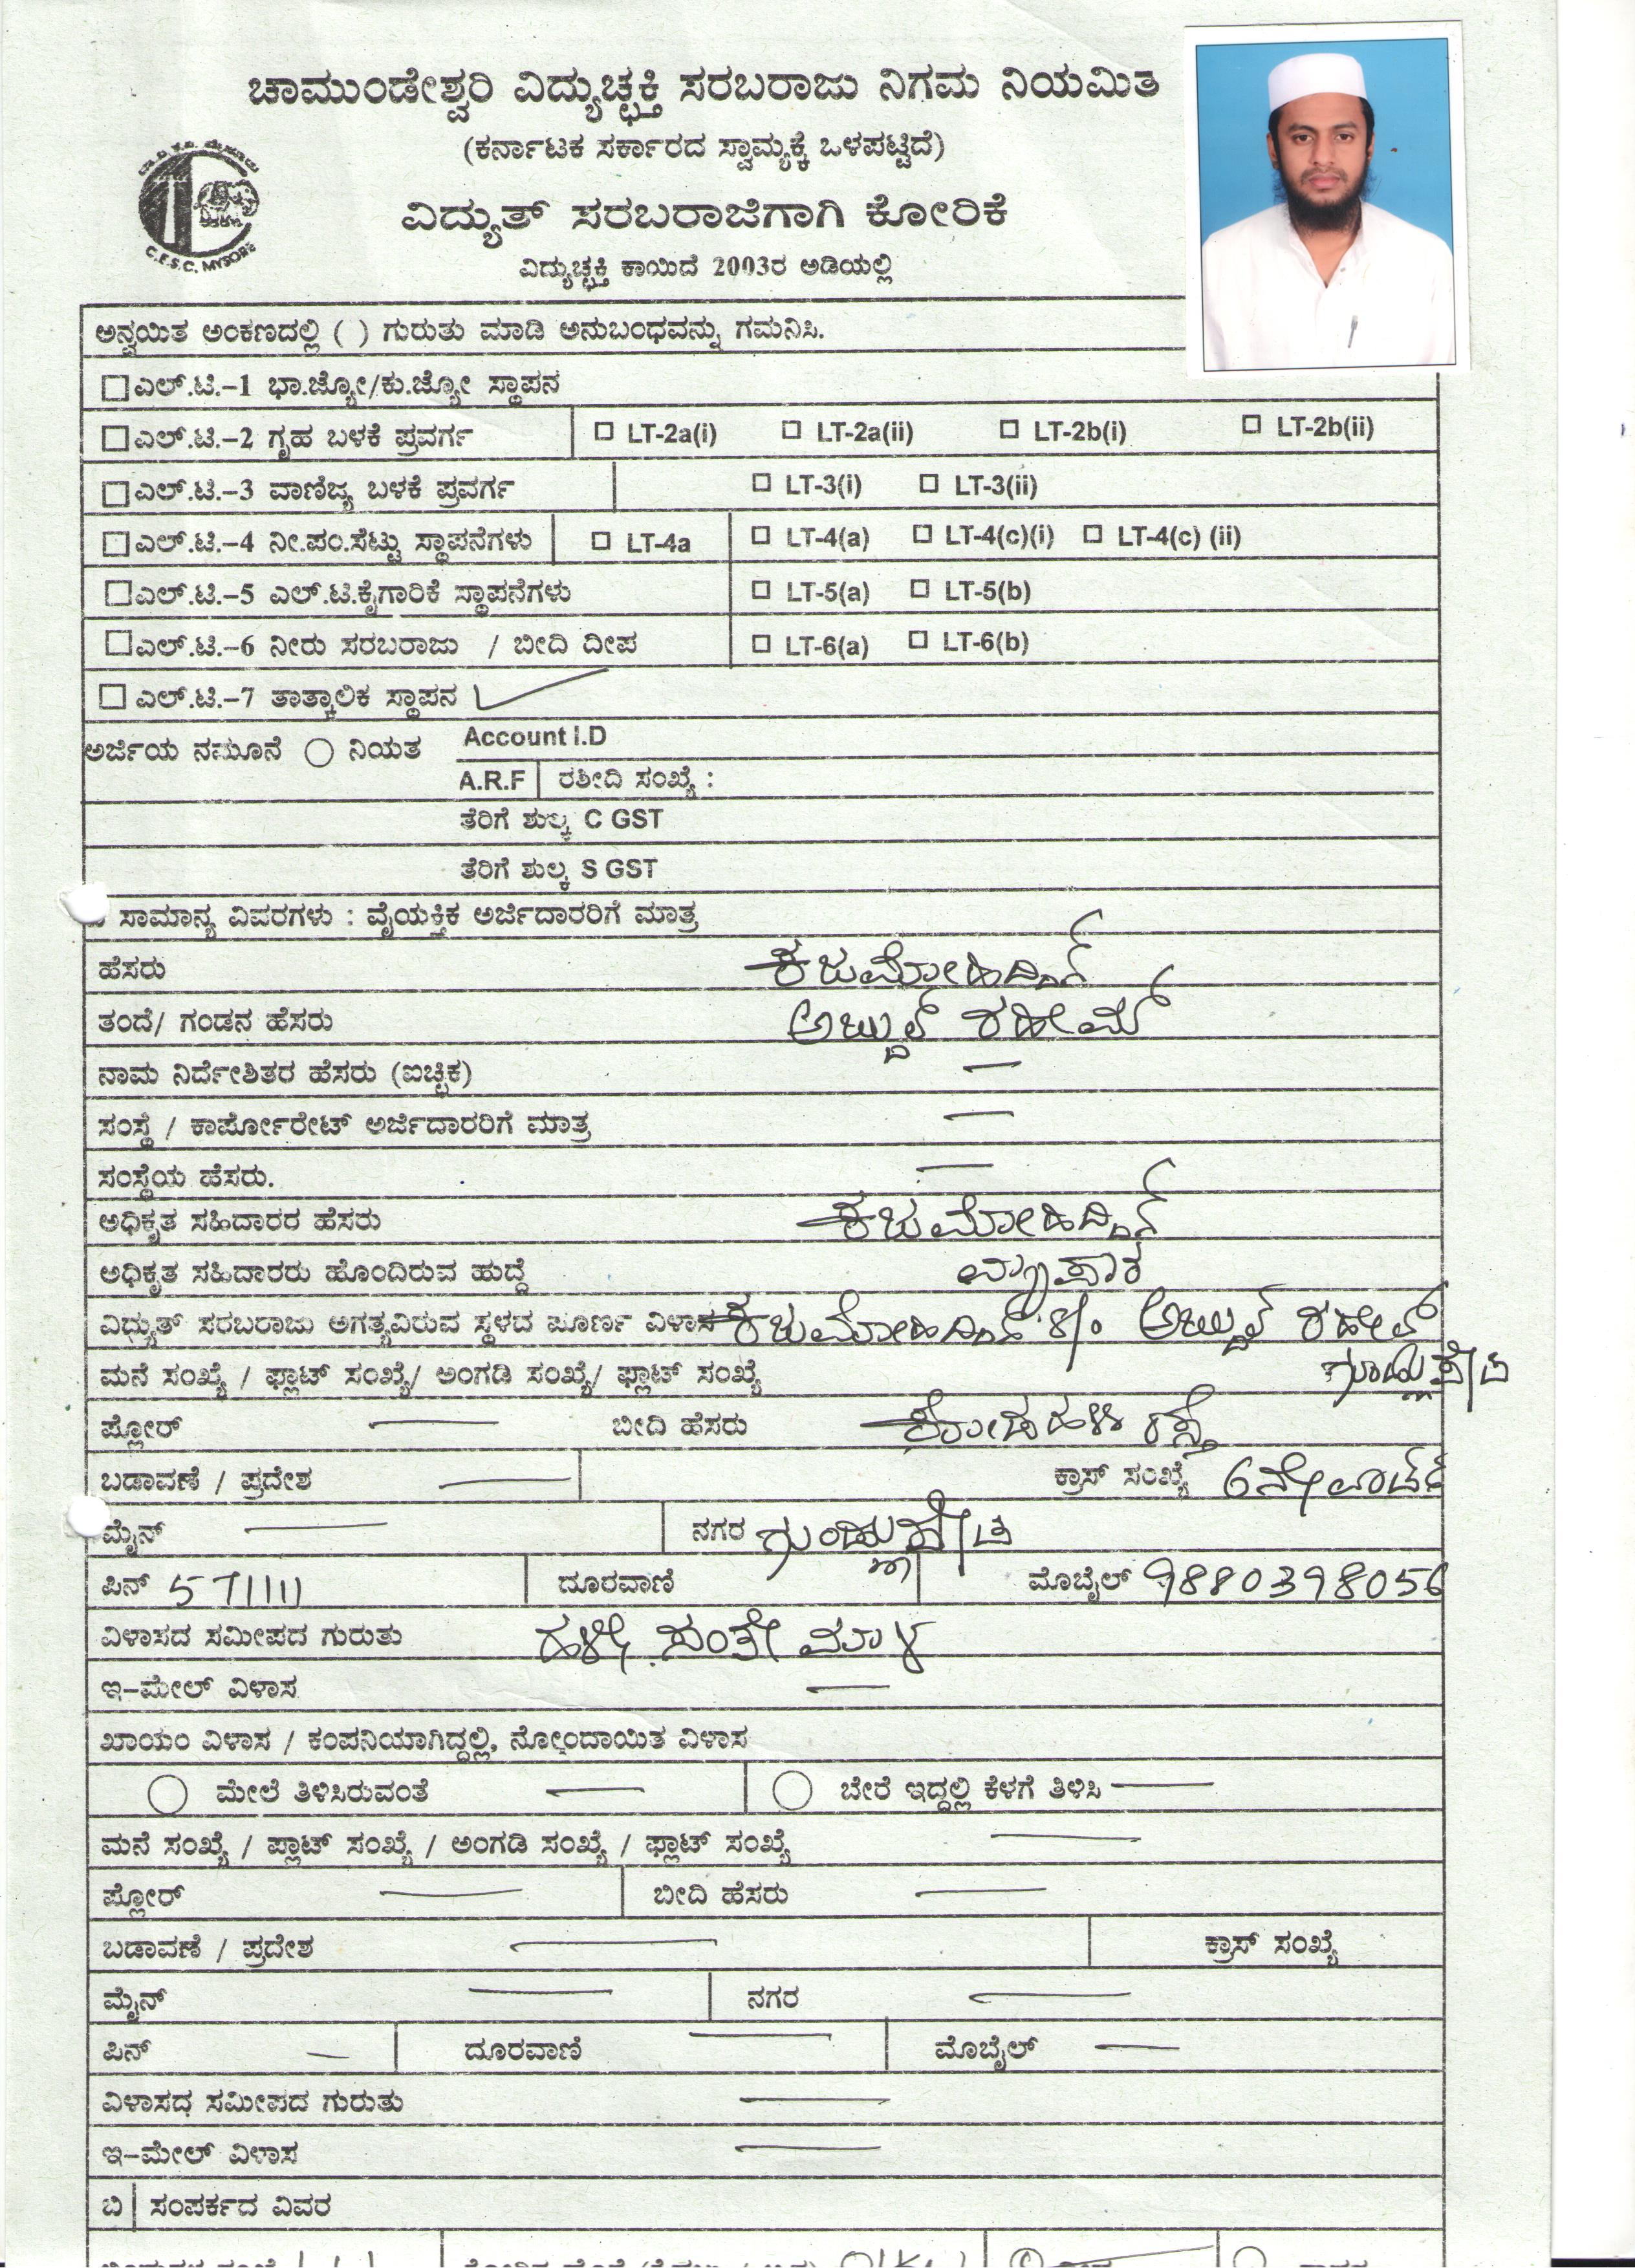 ಚಾಮುಂಡೇಶ್ವರಿ ವಿದ್ಯುಚ್ಛಕ್ತಿ ಸರಬರಾಜು ನಿಗಮ ನಿಯಮಿತ
(ಕರ್ನಾಟಕ ಸರ್ಕಾರದ ಸ್ವಾಮ್ಯಕ್ಕೆ ಒಳಪಟ್ಟಿದೆ)
C.E.S.C. MYSORE
ವಿದ್ಯುತ್ ಸರಬರಾಜಿಗಾಗಿ ಕೋರಿಕೆ
ವಿದ್ಯುಚ್ಛಕ್ತಿ ಕಾಯಿದೆ 2003ರ ಅಡಿಯಲ್ಲಿ
ಅನ್ವಯಿತ ಅಂಕಣದಲ್ಲಿ ( ) ಗುರುತು ಮಾಡಿ ಅನುಬಂಧವನ್ನು ಗಮನಿಸಿ.
ಎಲ್.ಟಿ.-1 ಭಾ.ಜ್ಯೋ/ಕು.ಜ್ಯೋ ಸ್ಥಾಪನ
ಎಲ್.ಟಿ.-2 ಗೃಹ ಬಳಕೆ ಪ್ರವರ್ಗ LT-2a(i) LT-2a(ii) LT-2b(i) LT-2b(ii)
ಎಲ್.ಟಿ.-3 ವಾಣಿಜ್ಯ ಬಳಕೆ ಪ್ರವರ್ಗ LT-3(i) LT-3(ii)
ಎಲ್.ಟಿ.-4 ನೀ.ಪಂ.ಸೆಟ್ಟು ಸ್ಥಾಪನೆಗಳು LT-4a LT-4(a) LT-4(c)(i) LT-4(c) (ii)
ಎಲ್.ಟಿ.-5 ಎಲ್.ಟಿ.ಕೈಗಾರಿಕೆ ಸ್ಥಾಪನೆಗಳು LT-5(a) LT-5(b)
ಎಲ್.ಟಿ.-6 ನೀರು ಸರಬರಾಜು / ಬೀದಿ ದೀಪ LT-6(a) LT-6(b)
ಎಲ್.ಟಿ.-7 ತಾತ್ಕಾಲಿಕ ಸ್ಥಾಪನ
ಅರ್ಜಿಯ ನಮೂನೆ ನಿಯತ Account I.D
A.R.F ರಶೀದಿ ಸಂಖ್ಯೆ :
ತೆರಿಗೆ ಶುಲ್ಕ C GST
ತೆರಿಗೆ ಶುಲ್ಕ S GST
ಸಾಮಾನ್ಯ ವಿವರಗಳು : ವೈಯಕ್ತಿಕ ಅರ್ಜಿದಾರರಿಗೆ ಮಾತ್ರ
ಹೆಸರು
ತಂದೆ/ ಗಂಡನ ಹೆಸರು ಅಬ್ದುಲ್ ರಹೀಮ್
ನಾಮ ನಿರ್ದೇಶಿತರ ಹೆಸರು (ಐಚ್ಛಿಕ)
ಸಂಸ್ಥೆ / ಕಾರ್ಪೋರೇಟ್ ಅರ್ಜಿದಾರರಿಗೆ ಮಾತ್ರ
ಸಂಸ್ಥೆಯ ಹೆಸರು.
ಅಧಿಕೃತ ಸಹಿದಾರರ ಹೆಸರು
ಅಧಿಕೃತ ಸಹಿದಾರರು ಹೊಂದಿರುವ ಹುದ್ದೆ ವ್ಯಾಪಾರ
ವಿಧ್ಯುತ್ ಸರಬರಾಜು ಅಗತ್ಯವಿರುವ ಸ್ಥಳದ ಪೂರ್ಣ ವಿಳಾಸ S/o ಅಬ್ದುಲ್ ರಹೀಮ್
ಮನೆ ಸಂಖ್ಯೆ / ಫ್ಲಾಟ್ ಸಂಖ್ಯೆ/ ಅಂಗಡಿ ಸಂಖ್ಯೆ/ ಫ್ಲಾಟ್ ಸಂಖ್ಯೆ
ಪ್ಲೋರ್ ಬೀದಿ ಹೆಸರು ರಸ್ತೆ
ಬಡಾವಣೆ / ಪ್ರದೇಶ ಕ್ರಾಸ್ ಸಂಖ್ಯೆ 6ನೇ ವಾರ್ಡ್
ಮೈನ್ ನಗರ ಗುಂಡ್ಲುಪೇಟೆ
ಪಿನ್ 571111 ದೂರವಾಣಿ ಮೊಬೈಲ್ 9880398056
ವಿಳಾಸದ ಸಮೀಪದ ಗುರುತು ಹಳೇ ಸಂತೇ ಮಾಳ
ಇ-ಮೇಲ್ ವಿಳಾಸ
ಖಾಯಂ ವಿಳಾಸ / ಕಂಪನಿಯಾಗಿದ್ದಲ್ಲಿ, ನೋಂದಾಯಿತ ವಿಳಾಸ
ಮೇಲೆ ತಿಳಿಸಿರುವಂತೆ ಬೇರೆ ಇದ್ದಲ್ಲಿ ಕೆಳಗೆ ತಿಳಿಸಿ
ಮನೆ ಸಂಖ್ಯೆ / ಪ್ಲಾಟ್ ಸಂಖ್ಯೆ / ಅಂಗಡಿ ಸಂಖ್ಯೆ / ಫ್ಲಾಟ್ ಸಂಖ್ಯೆ
ಪ್ಲೋರ್ ಬೀದಿ ಹೆಸರು
ಬಡಾವಣೆ / ಪ್ರದೇಶ ಕ್ರಾಸ್ ಸಂಖ್ಯೆ
ಮೈನ್ ನಗರ
ಪಿನ್ ದೂರವಾಣಿ ಮೊಬೈಲ್
ವಿಳಾಸದ ಸಮೀಪದ ಗುರುತು
ಇ-ಮೇಲ್ ವಿಳಾಸ
ಬಿ ಸಂಪರ್ಕದ ವಿವರ